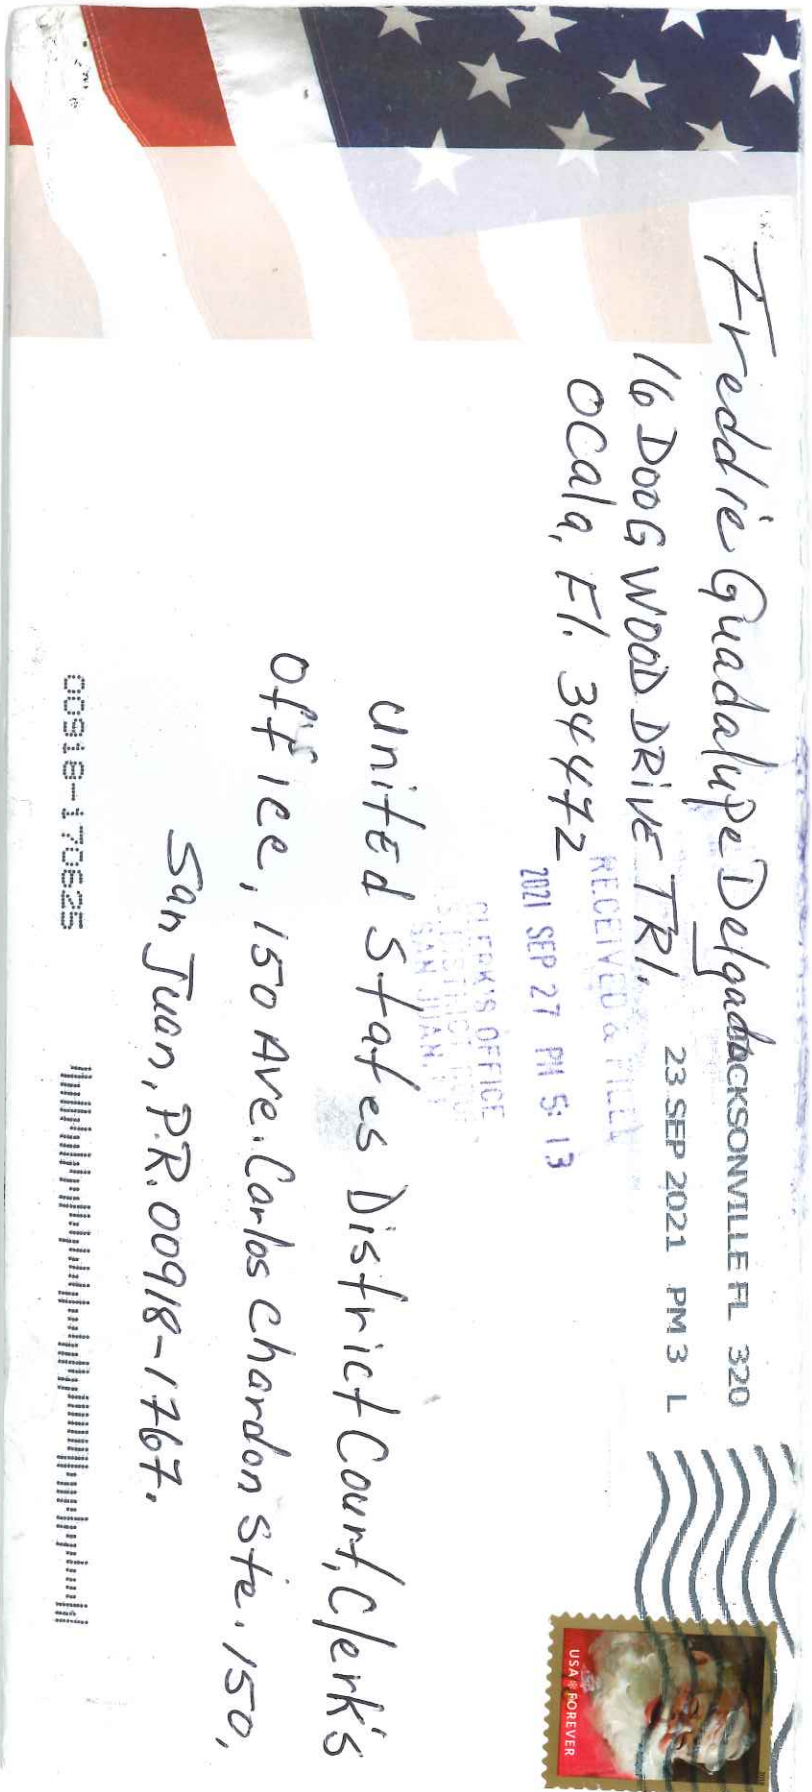 Freddie Guadalupe Delgado
16 DOOG WOOD DRIVE TRl.
OCala, Fl. 34472
JACKSONVILLE FL 320
23 SEP 2021 PM 3 L
RECEIVED & FILED
2021 SEP 27 PM 5:13
CLERK'S OFFICE
SAN JUAN,
USA FOREVER
United States District Court, Clerk's
office, 150 Ave. Carlos Chardon Ste. 150,
San Juan, P.R. 00918-1767.
00918-170625